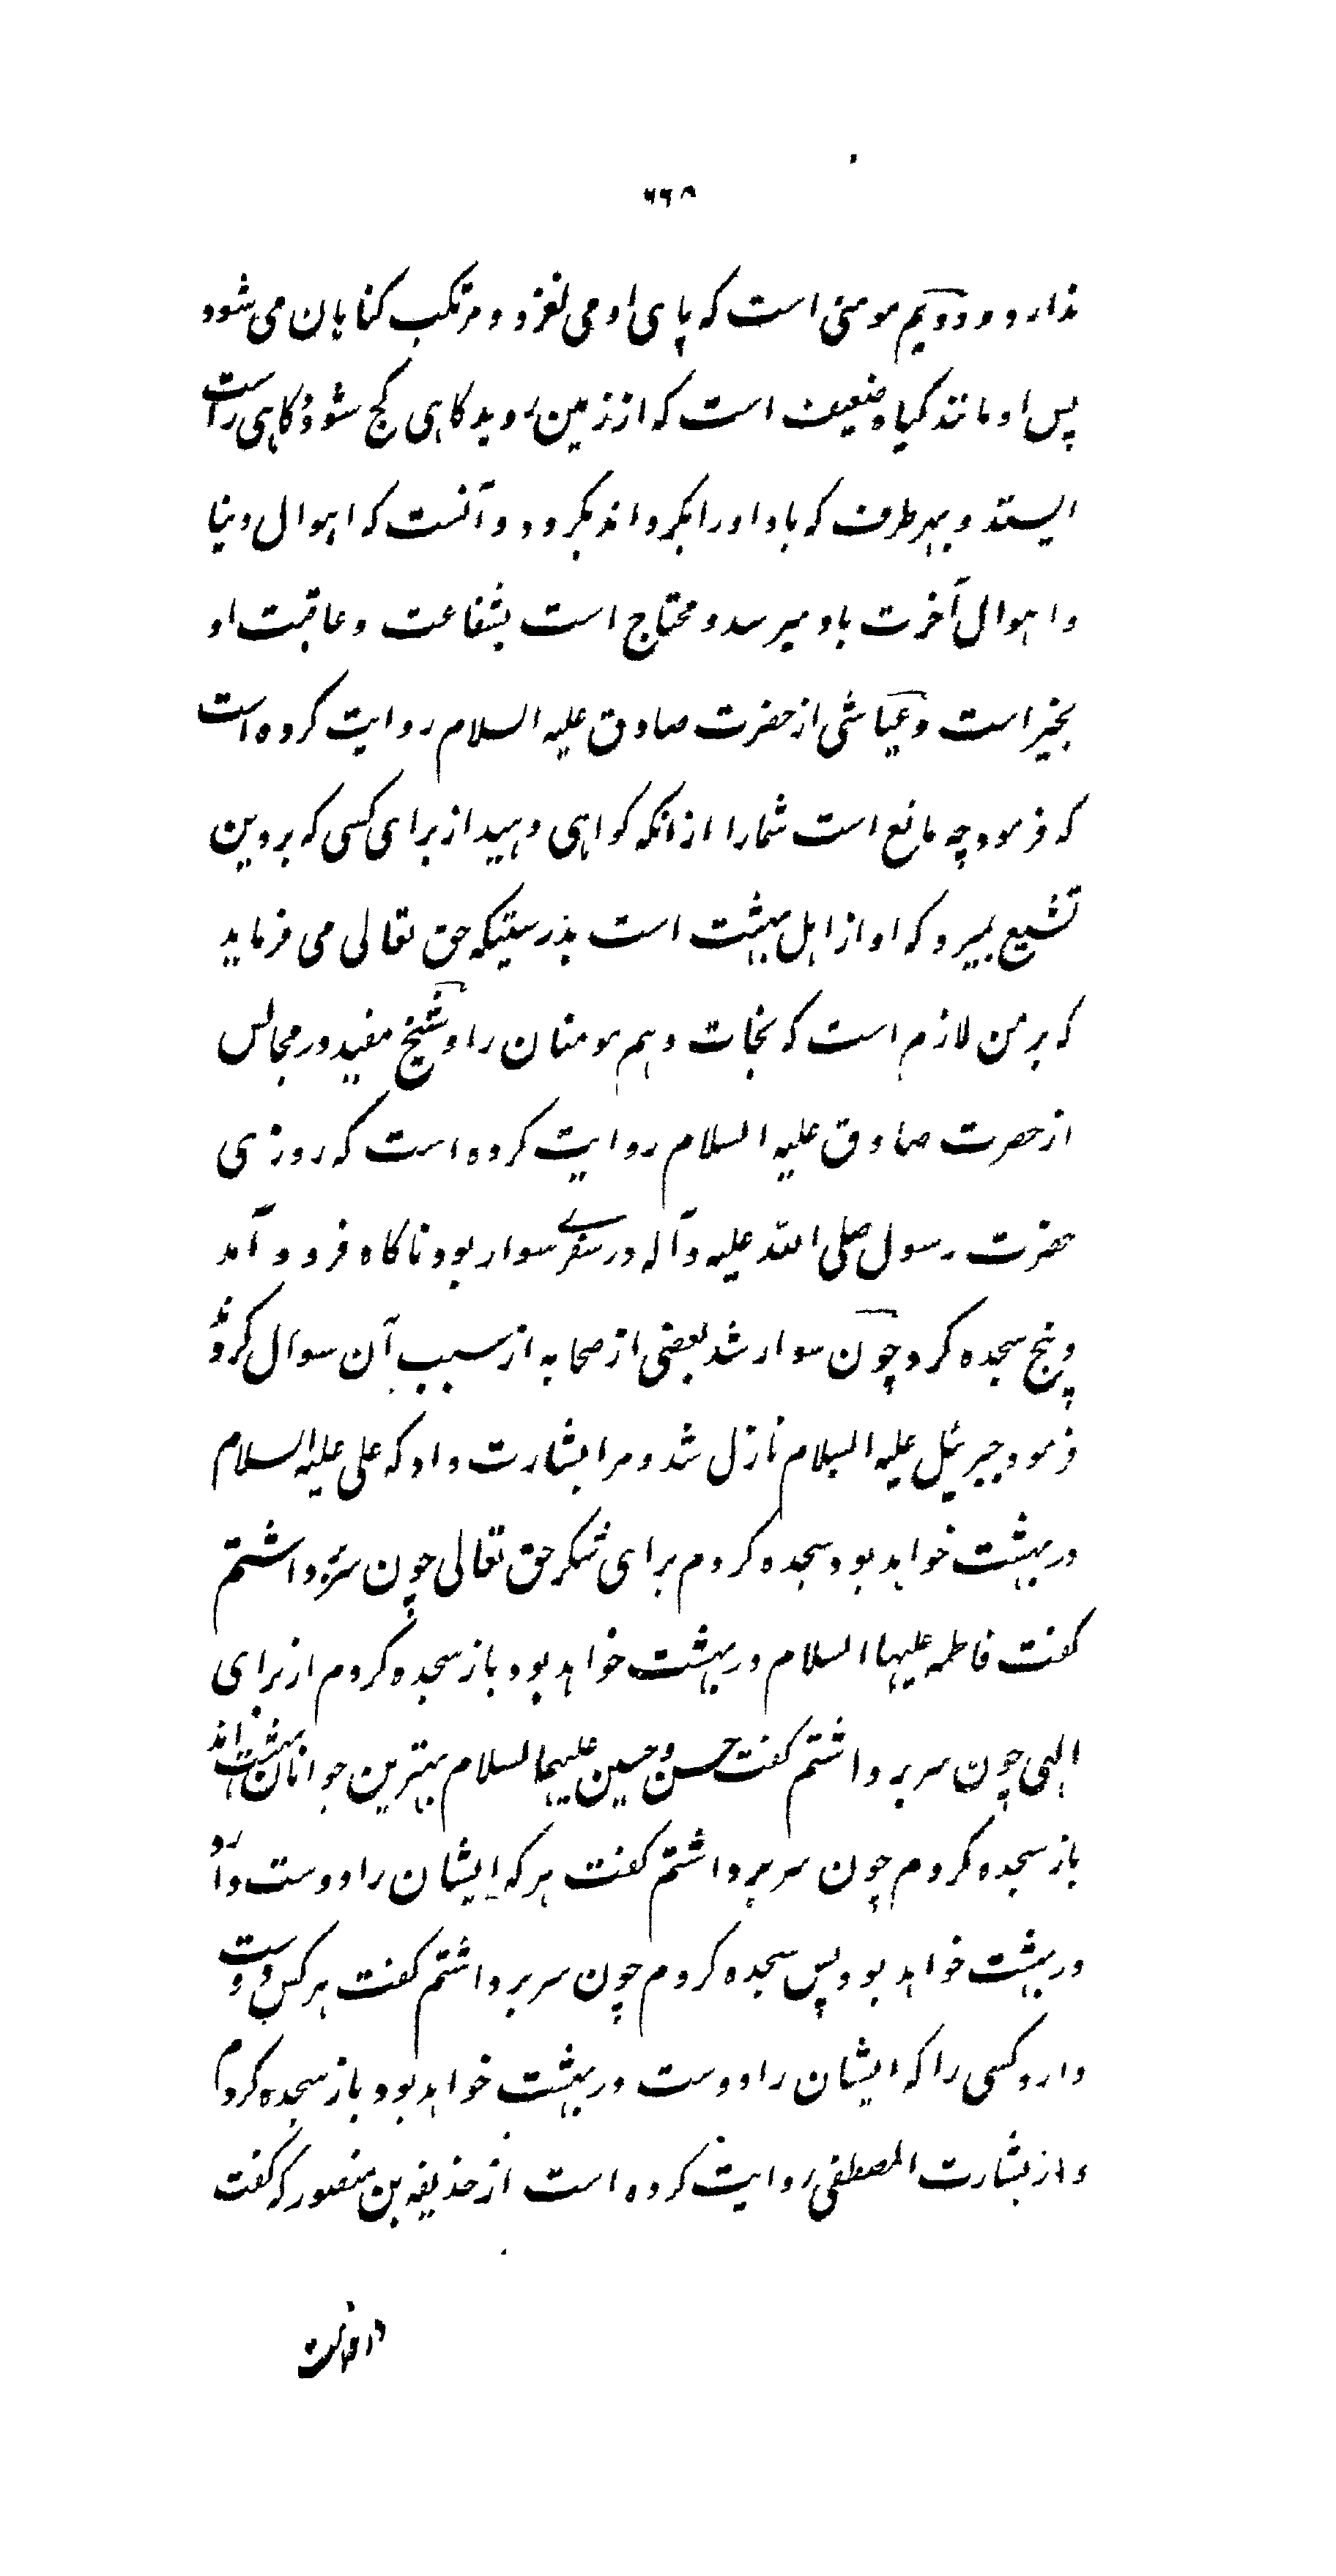 ۶۶۸
ندارد و دویم مومنی است که پای او می لغزد و مرتکب کناهان می شود
پس او مانند کیاه ضعیف است که از زمین روید کاهی کج شود و کاهی راست
ایستد و بهر طرف که باد او را بکرداند بکردد و آنست که اهوال دنیا
و اهوال آخرت باو میرسد و محتاج است بشفاعت و عاقبت او
بخیر است و عیاشی از حضرت صادق علیه السلام روایت کرده است
که فرمود چه مانع است شما را از انکه کواهی دهید از برای کسی که بر دین
تشیع بمیرد که او از اهل بهشت است بدرستیکه حق تعالی می فرماید
که بر من لازم است که نجات دهم مومنان را و شیخ مفید در مجالس
از حضرت صادق علیه السلام روایت کرده است که روزی
حضرت رسول صلی الله علیه و آله در سفرے سوار بود ناکاه فرود آمد
و پنج سجده کرد چون سوار شد بعضی از صحابه از سبب آن سوال کردند
فرمود جبرئیل علیه السلام نازل شد و مرا بشارت داد که علی علیه السلام
در بهشت خواهد بود سجده کردم برای شکر حق تعالی چون سر برداشتم
کفت فاطمه علیها السلام در بهشت خواهد بود باز سجده کردم از برای
الهی چون سر برداشتم کفت حسن و حسین علیهما السلام بهترین جوانان بهشت اند
باز سجده کردم چون سر برداشتم کفت هر که ایشان را دوست دارد
در بهشت خواهد بود پس سجده کردم چون سر برداشتم کفت هر کس دوست
دارد کسی را که ایشان را دوست در بهشت خواهد بود باز سجده کردم
و از بشارت المصطفی روایت کرده است از حذیفه بن منصور که کفت